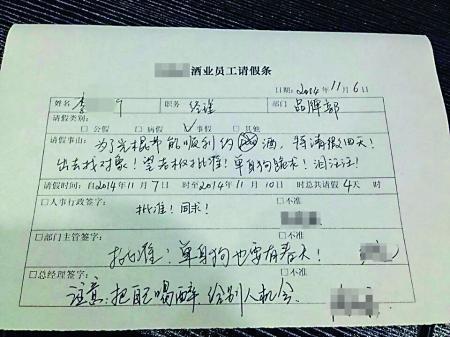 酒业员工请假条
日期：2014年11月6日
姓名 李 职务 经理 部门 品牌部
请假类别：
□公假 □病假 ☑事假 □其他
请假事由：为了光棍节能顺利约酒，特请假四天！
出去找对象！望老板批准！单身狗跪求！泪汪汪！
请假时间：自2014年11月7日 时至2014年11月10日 时总共请假4天 时
□人事行政签字： □不准
批准！同求！
□部门主管签字： □不准
批准！单身狗也要有春天！
□总经理签字： □不准
注意：把自己喝醉，给别人机会